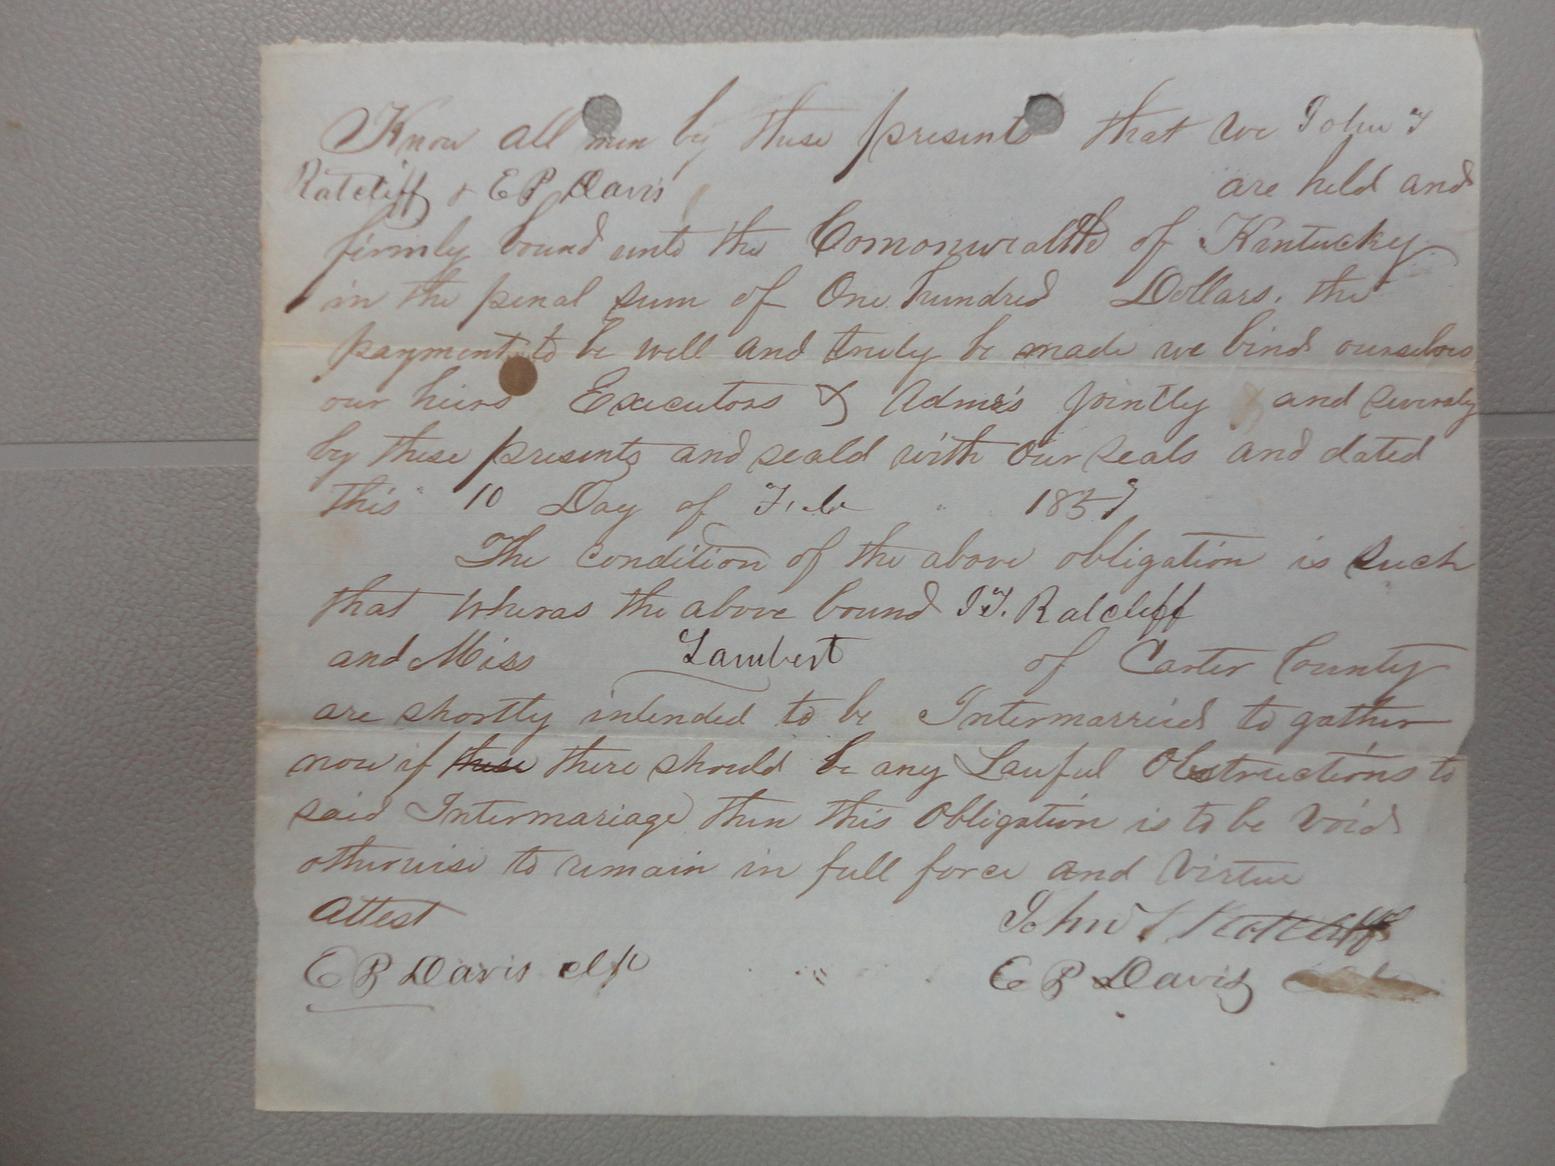 Know all men by these presents that we John T
Ratcliff & E P Davis are held and
firmly bound unto the Comonwealth of Kentucky
in the penal sum of One hundred Dollars. the
payment to be well and truly be made we bind ourselves
our heirs Executors & Adm's jointly and severaly
by these presents and seald with our seals and dated
this 10 Day of Feb 1857
The condition of the above obligation is such
that wheras the above bound J T. Ratcliff
and Miss Lambert of Carter County
are shortly intended to be Intermarried to gather
now if these there should be any Lawful Obstructions to
said Intermariage then this Obligation is to be void
otherwise to remain in full force and virtue
Attest John T Ratcliff
E P Davis clk E P Davis